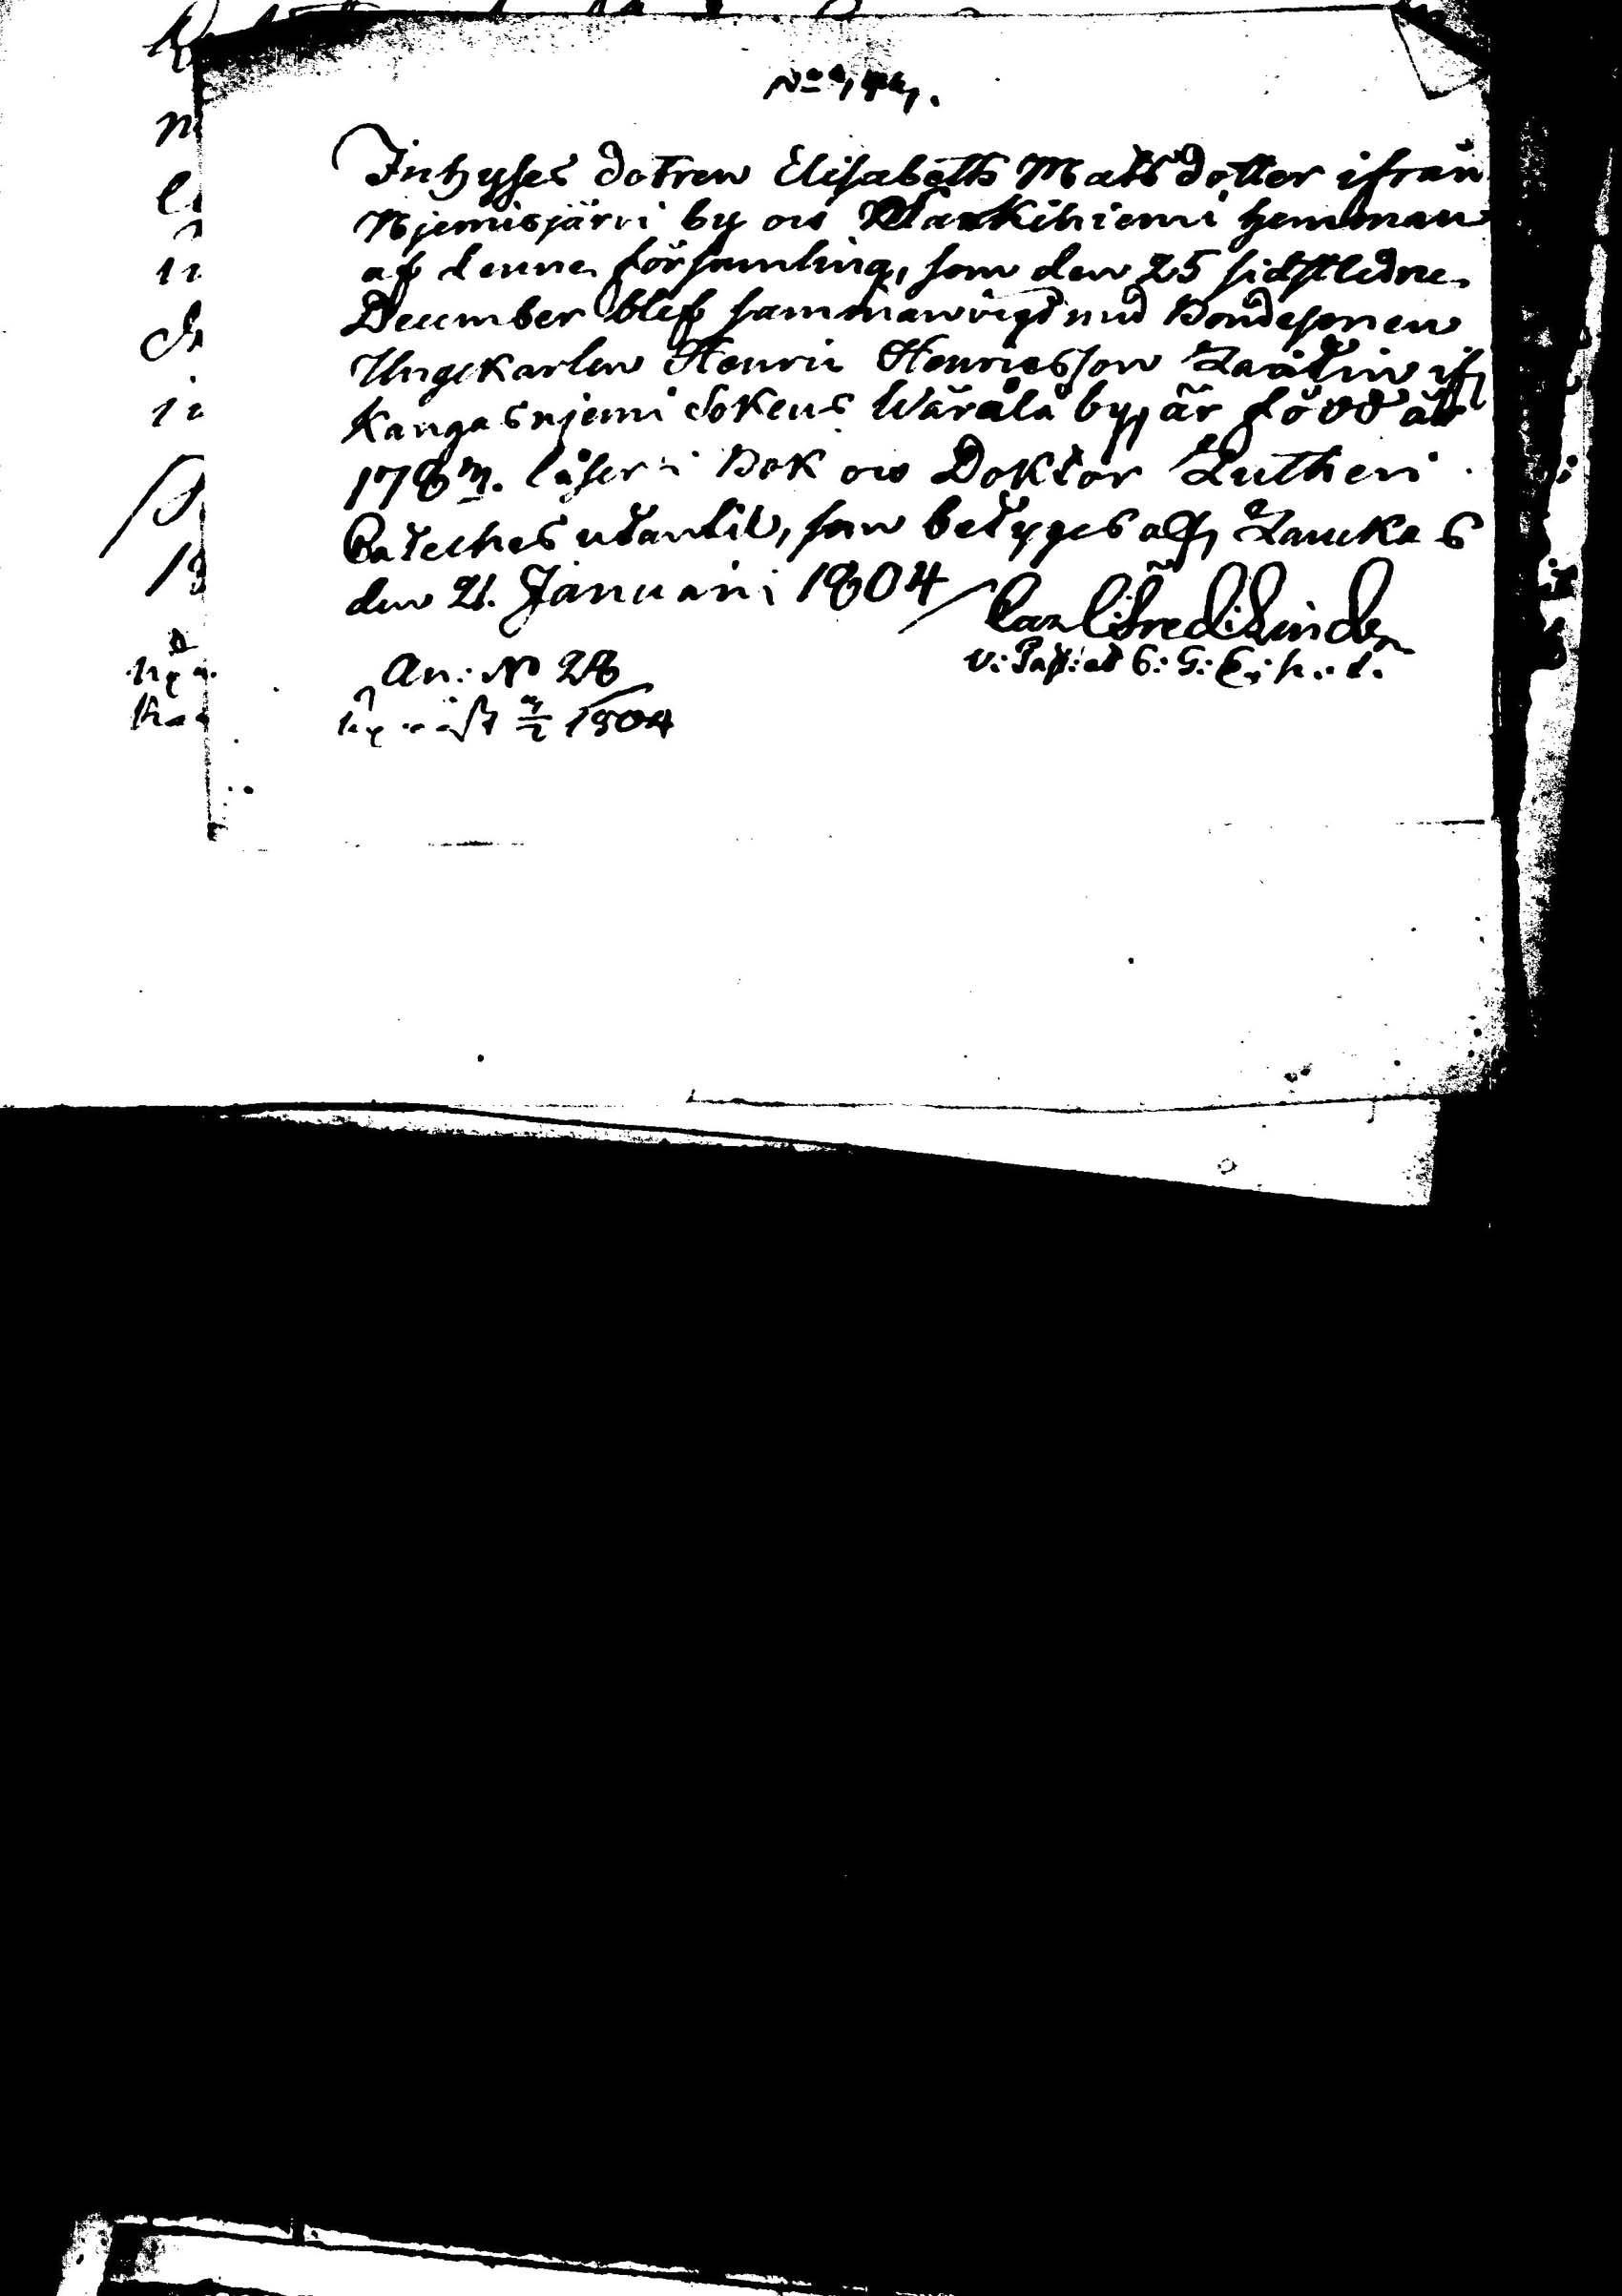 Inhyses dotren Elisabeth Matsdotter ifrån
Njemisjärvi by och Karkihiemi hemman
af denne församling, som den 25 sidstledne
December blef sammanvigd med Bondesonen
Ungekarlen Henric Henricsson Laatin if
Kangasnjemi Sokens Wärålä by, är född år
178 läser i Bok och Doktor Lutheri
Cateches utantil, som betyges af Laucka s
den 21. Januarii 1804 Carl Fred. Linde
v: Past:
An: No 28
1804